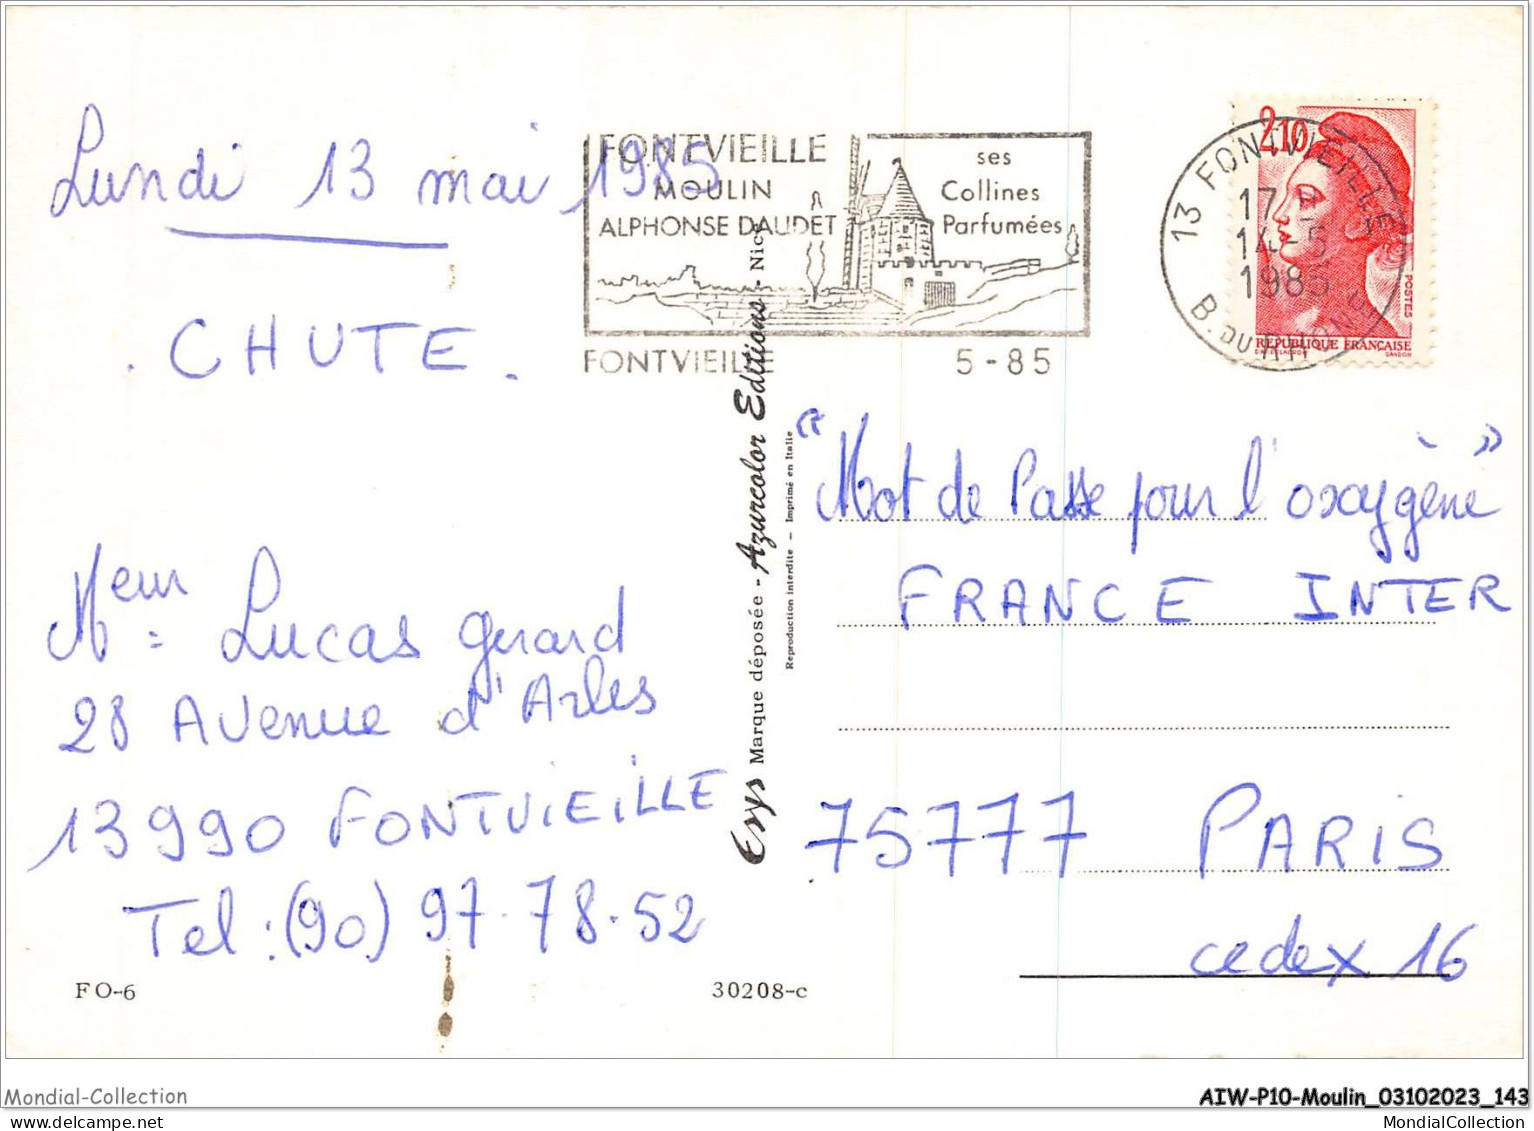 Lundi 13 mai 1985
CHUTE.
Meur = Lucas Gerard
28 Avenue d'Arles
13990 FONTVIEILLE
Tel : (90) 97-78-52
FO-6
30208-c
FONTVIEILLE
MOULIN
ALPHONSE DAUDET
ses
Collines
Parfumées
FONTVIEILLE 5-85
Erys Marque déposée - Azurcolor Editions - Nice
Reproduction interdite - Imprimé en Italie
2,10
POSTES
REPUBLIQUE FRANÇAISE
GANDON
13 FONTVIEILLE
17
14-5
1985
B. DU RHONE
"Mot de Passe pour l'oxygène"
FRANCE INTER
75777 PARIS
cedex 16
Mondial-Collection
MondialCollection
AIW-P10-Moulin_03102023_143
MondialCollection